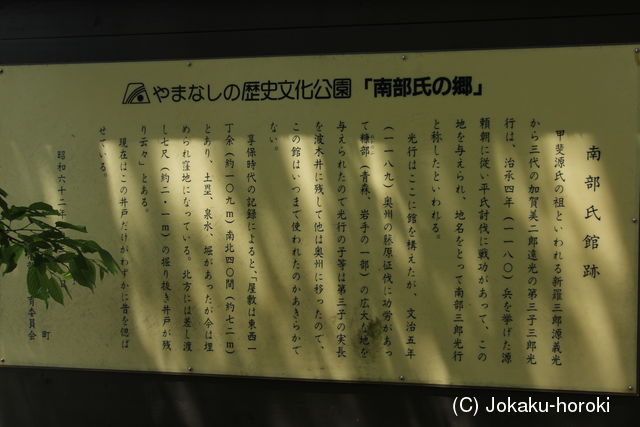 やまなしの歴史文化公園「南部氏の郷」
南部氏館跡
甲斐源氏の祖といわれる新羅三郎源義光
から三代の加賀美二郎遠光の第三子三郎光
行は、治承四年（一一八〇）兵を挙げた源
頼朝に従い平氏討伐に戦功があって、この
地を与えられ、地名をとって南部三郎光行
と称したといわれる。
光行はここに館を構えたが、文治五年
（一一八九）奥州の藤原征伐に功労があっ
て糠部（青森、岩手の一部）の広大な地を
与えられたので光行の子等は第三子の実長
を波木井に残して他は奥州に移ったので、
この館はいつまで使われたのかあきらかで
ない。
享保時代の記録によると、「屋敷は東西一
丁余（約一〇九ｍ）南北四〇間（約七二ｍ）
とあり、土塁、泉水、堀があったが今は埋
められ窪地になっている。北方には差し渡
し七尺（約二・一ｍ）の掘り抜き井戸が残
り云々」とある。
現在はこの井戸だけがわずかに昔を偲ば
せている。
昭和六十二年
町
育委員会
(C) Jokaku-horoki